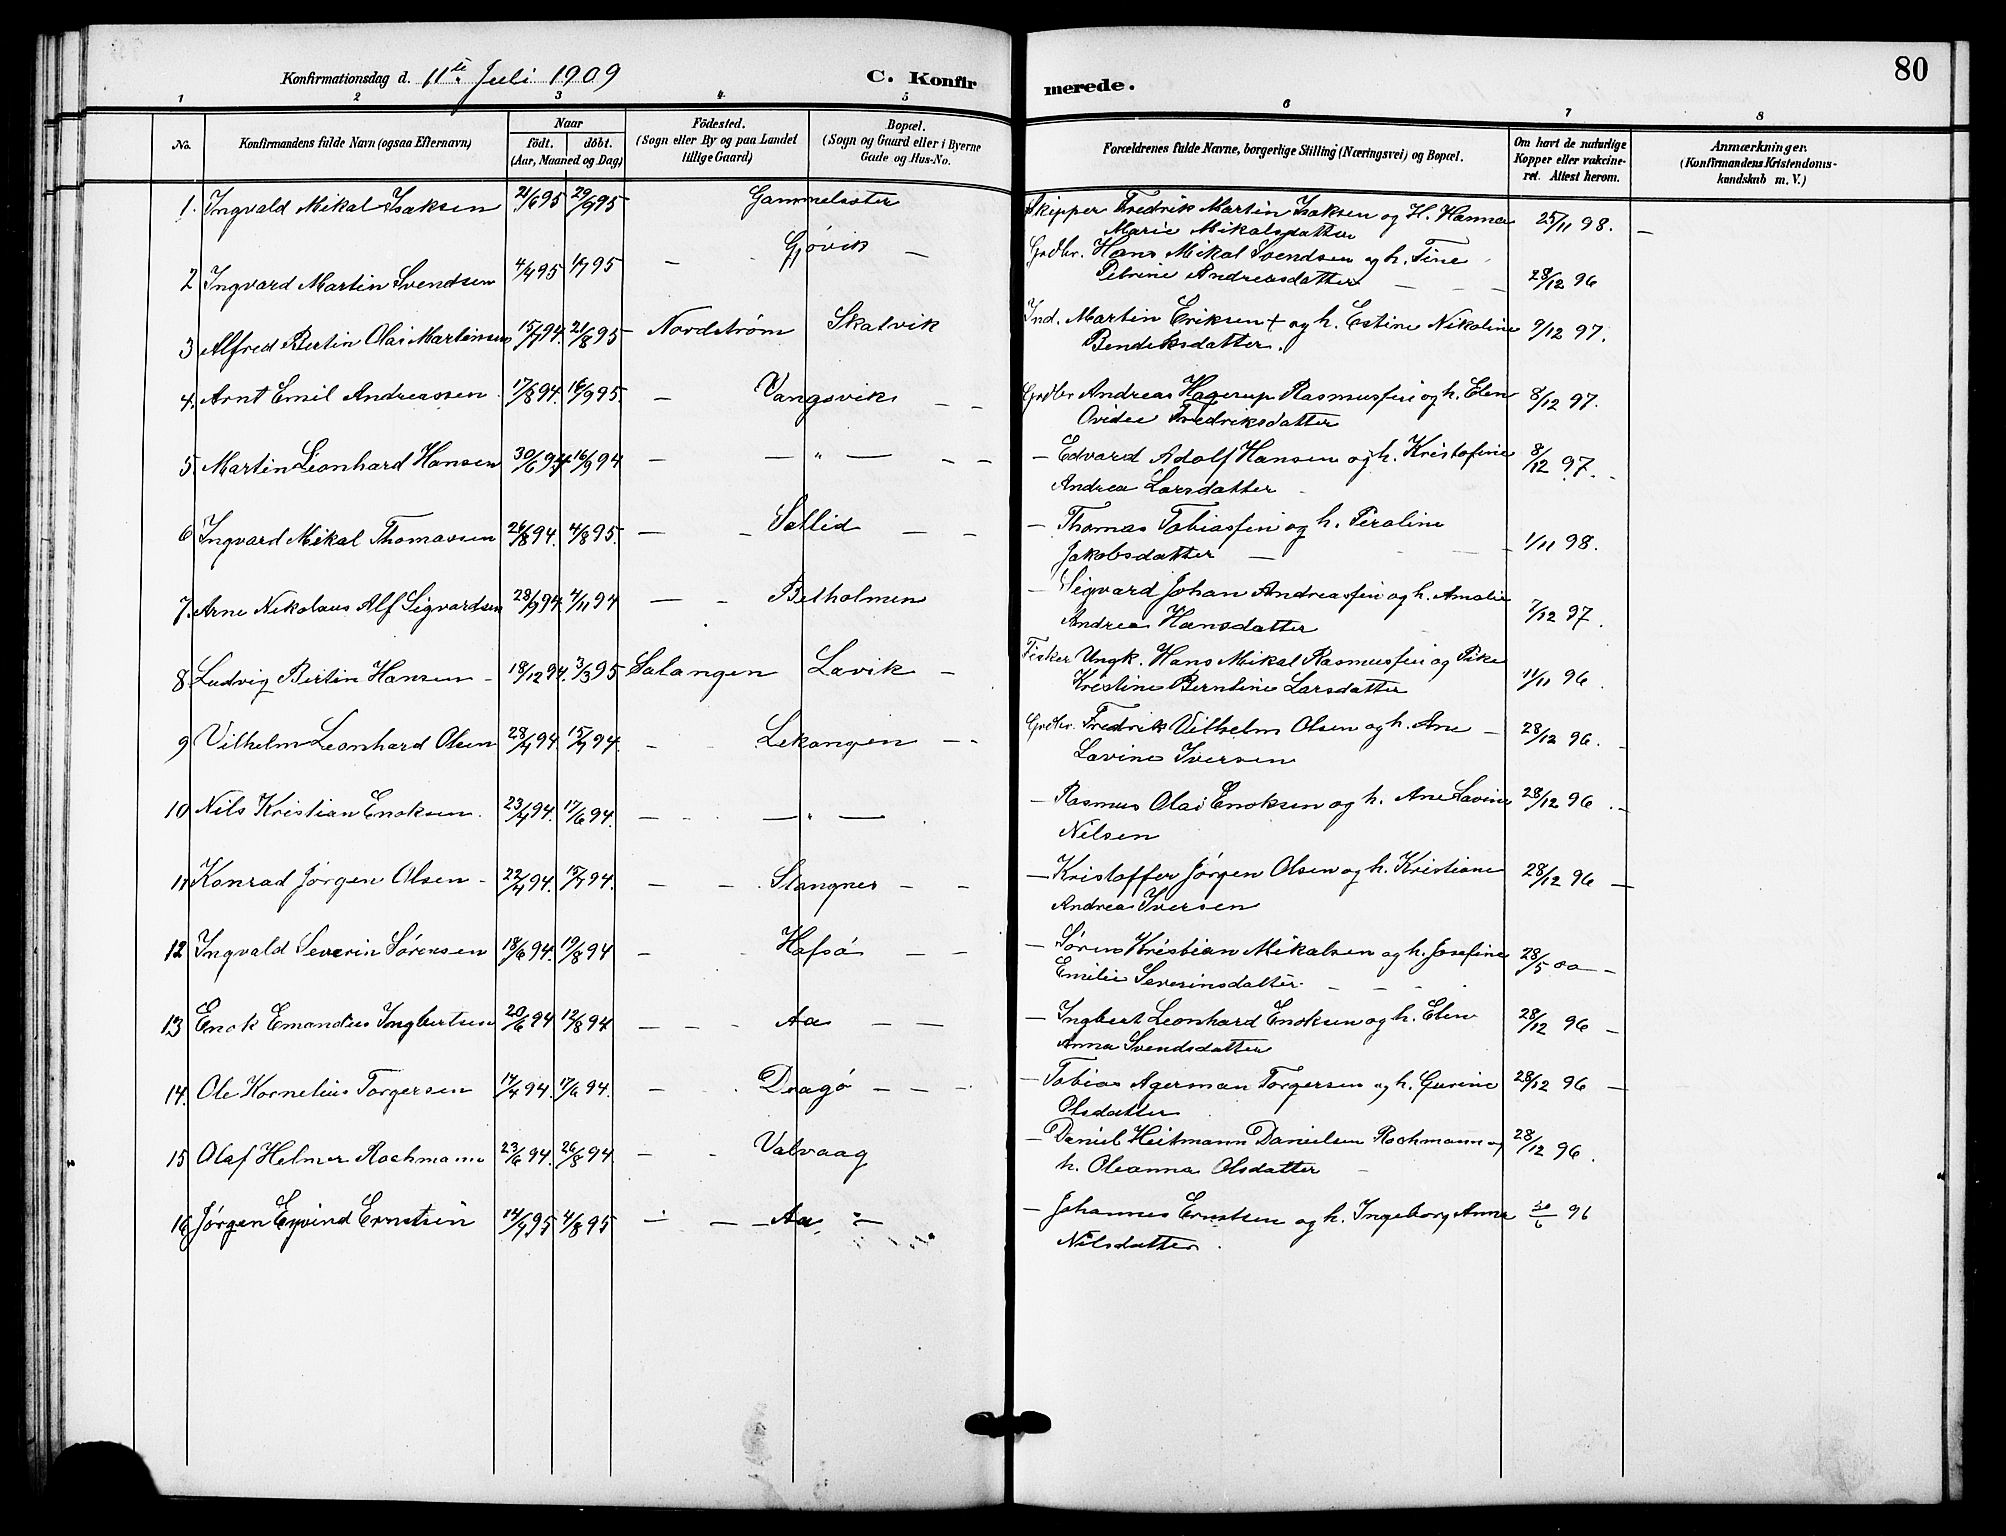 Konfirmationsdag d. 11te Juli 1909
C. Konfirmerede.
80
1 2 3 4 5 6 7 8
No. Konfirmandens fulde Navn (ogsaa Efternavn) Naar født. døbt. (Aar, Maaned og Dag) Födested. (Sogn eller By og paa Landet tillige Gaard) Bopæl. (Sogn og Gaard eller i Byerne Gade og Hus-No. Forældrenes fulde Navne, borgerlige Stilling (Næringsvei) og Bopæl. Om havt de naturlige Kopper eller vakcineret. Attest herom. Anmærkninger. (Konfirmandens Kristendomskundskab m. V.)
1. Ingvald Mikal Isaksen 21/6 95 29/9 95 Gammelsæter Skipper Fredrik Martin Isaksen og H. Hanna 25/11 98. —
Marie Mikalsdatter
2 Ingvard Martin Svendsen 4/4 95 1/7 95 — Gjövik — Grdbr. Hans Mikal Svendsen og h. Tine
Petrine Andreasdatter — — — 28/12 96
3 Alfred Bertin Olai Martinsen 15/7 94. 21/8 95 — Nordstrøm Skalvik Ind. Martin Eriksen + og h. Estine Nikoline 9/12 97.
Bendiksdatter.
4. Arnt Emil Andreassen 17/8 94. 16/9 95. — Vangsvik — — Grdbr Andreas Hagerup Rasmussen og h. Elen 8/12 97.
Ovidee Fredriksdatter
5 Martin Leonhard Hansen 30/6 94 16/9 94 — — " — — — — Edvard Adolf Hansen og h. Kristofine 8/12 97.
Andrea Larsdatter
6 Ingvard Mikal Thomassen 26/8 94. 4/8 95. — — Sollid — — — Thomas Tobiassen og h. Peroline
Jakobsdatter — 1/11 98.
7. Arne Nikolaus Alf Sigvardsen 28/9 94. 4/11 94 — — Betholmen — Sigvard Johan Andreassen og h. Amalie 7/12 97.
Andrea Hansdatter
8 Ludvig Bertin Hansen — 18/12 94. 3/3 95 Salangen Lavik — Fisker Ungk. Hans Mikal Rasmussen og Pike 11/11 96.
Kristine Berntine Larsdatter
9 Vilhelm Leonhard Olsen 28/4 94. 15/7 94. — Lekangen — — Grdbr. Fredrik Vilhelm Olsen og h. Ane — 28/12 96. —
Lavine Iversen
10 Nils Kristian Enoksen. 23/4 94. 17/6 94. — — " — — Rasmus Olai Enoksen og h. Ane Lavine 28/12 96. —
Nilsen
11 Konrad Jörgen Olsen — 22/4 94. 15/7 94. — — Stangnes — — — Kristoffer Jörgen Olsen og h. Kristiane 28/12 96 —
Andrea Iversen
12 Ingvald Severin Sörensen 18/6 94. 19/8 94 — Hafsö — — — Sören Kristian Mikalsen og h. Josefine 28/5 00 —
Emilie Severinsdatter. — — —
13 Enok Emandus Ingbertsen 20/6 94 12/8 94 — — — Aa — — — Ingbert Leonhard Enoksen og h. Elen 28/12 96 —
Anna Svendsdatter
14. Ole Kornelius Torgersen 14/4 94. 17/6 94. — Dragö — — — — Tobias Agerman Torgersen og h. Gurine 28/12 96 —
Olsdatter
15 Olaf Helmer Rochmann 23/6 94. 26/8 94. — — Valvaag — Daniel Heitmann Danielsen Rochmann og 28/12 96.
h. Oleanna Olsdatter —
16 Jörgen Eyvind Ernstsen 14/7 95 4/8 95 — — — Aa — — Johannes Ernstsen og h. Ingeborg Anna 30/6 96
Nilsdatter.